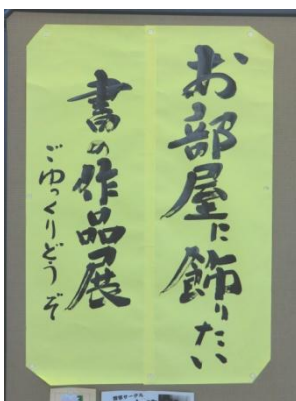 お部屋に飾りたい
書の作品展
ごゆっくりどうぞ